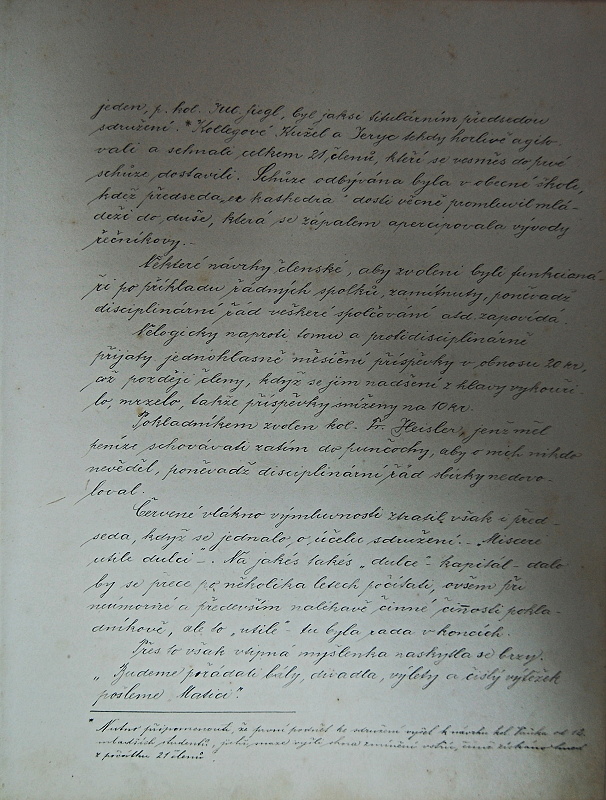 jeden, p. kol. Jul. Siegl, byl jaksi titulárním předsedou
sdružení.* Kollegové Kužel a Jeryc tehdy horlivě agito-
vali a sehnali celkem 21 členů, kteří se vesměs do prvé
schůze dostavili. Schůze odbývána byla v obecné škole,
kdež předseda „ex kathedra" dosti věcně promluvil mlá-
deži do duše, která se zápalem apercipovala vývody
řečníkovy.-
Některé návrhy členské, aby zvoleni byli funkcioná-
ři po příkladu řádných spolků, zamítnuty, poněvadž
disciplinární řád veškeré spolčování atd. zapovídá.
Nelogicky naproti tomu a protidisciplinárně
přijaty jednohlasně měsíční příspěvky v obnosu 20 kr,
což později členy, když se jim nadšení z hlavy vykouři-
lo, mrzelo, takže příspěvky sníženy na 10 kr.
Pokladníkem zvolen kol. Fr. Heisler, jenž měl
peníze schovávati zatím do punčochy, aby o nich nikdo
nevěděl, poněvadž disciplinární řád sbírky nedovo-
loval.
Červené vlákno výmluvnosti ztratil však i před-
seda, když se jednalo o účelu sdružení. - „Miscere
utile dulci" -. Na jakés takés „dulce" - kapitál - dalo
by se přece po několika letech počítati, ovšem při
neúmorné a především naléhavě činné činnosti pokla-
dníkově, ale to „utile" - tu byla rada v koncích.
Přes to však vtipná myšlenka naskytla se brzy.
„Budeme pořádati bály, divadla, výlety a čistý výtěžek
pošleme „Matici".
* Nutno připomenouti, že první podnět ke sdružení vyšel k návrhu kol.
mladších studentů,
z počátku 21 členů